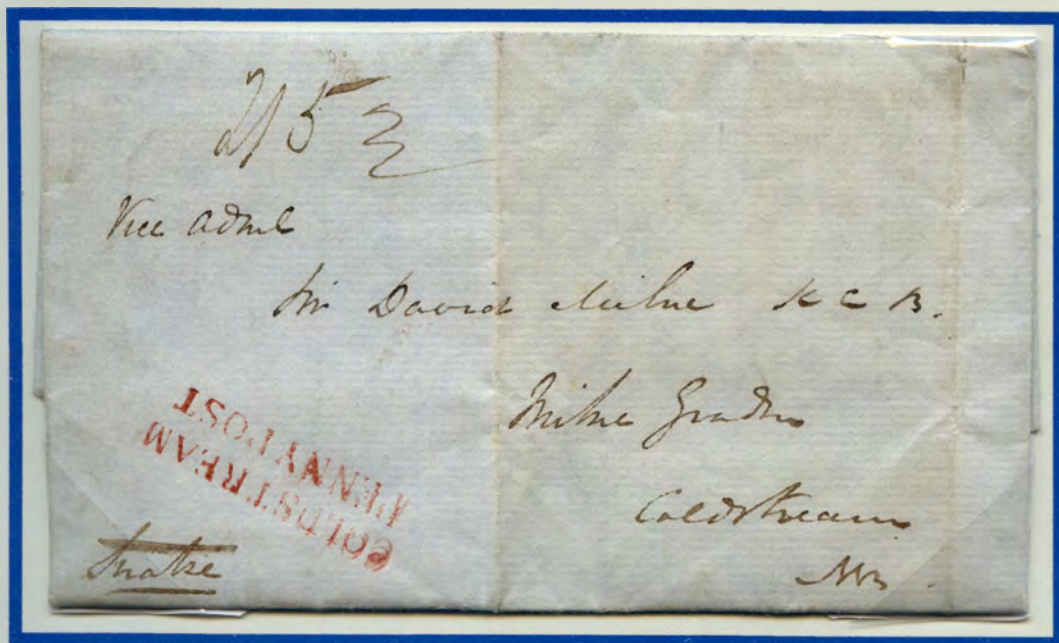 2/5½
Vice Adml
Sir David Milne K C B.
Milne Graden
Coldstream
COLDSTREAM
PENNY POST
Snake